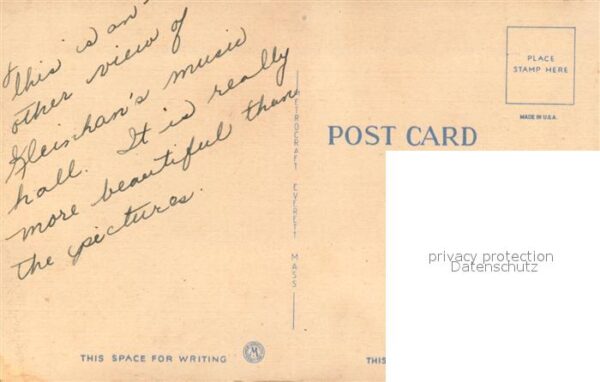 This is an-
other view of
Kleinhan's music
hall. It is really
more beautiful than
the pictures.
METROCRAFT EVERETT MASS
PLACE
STAMP HERE
MADE IN U.S.A.
POST CARD
privacy protection
Datenschutz
THIS SPACE FOR WRITING
M
THIS